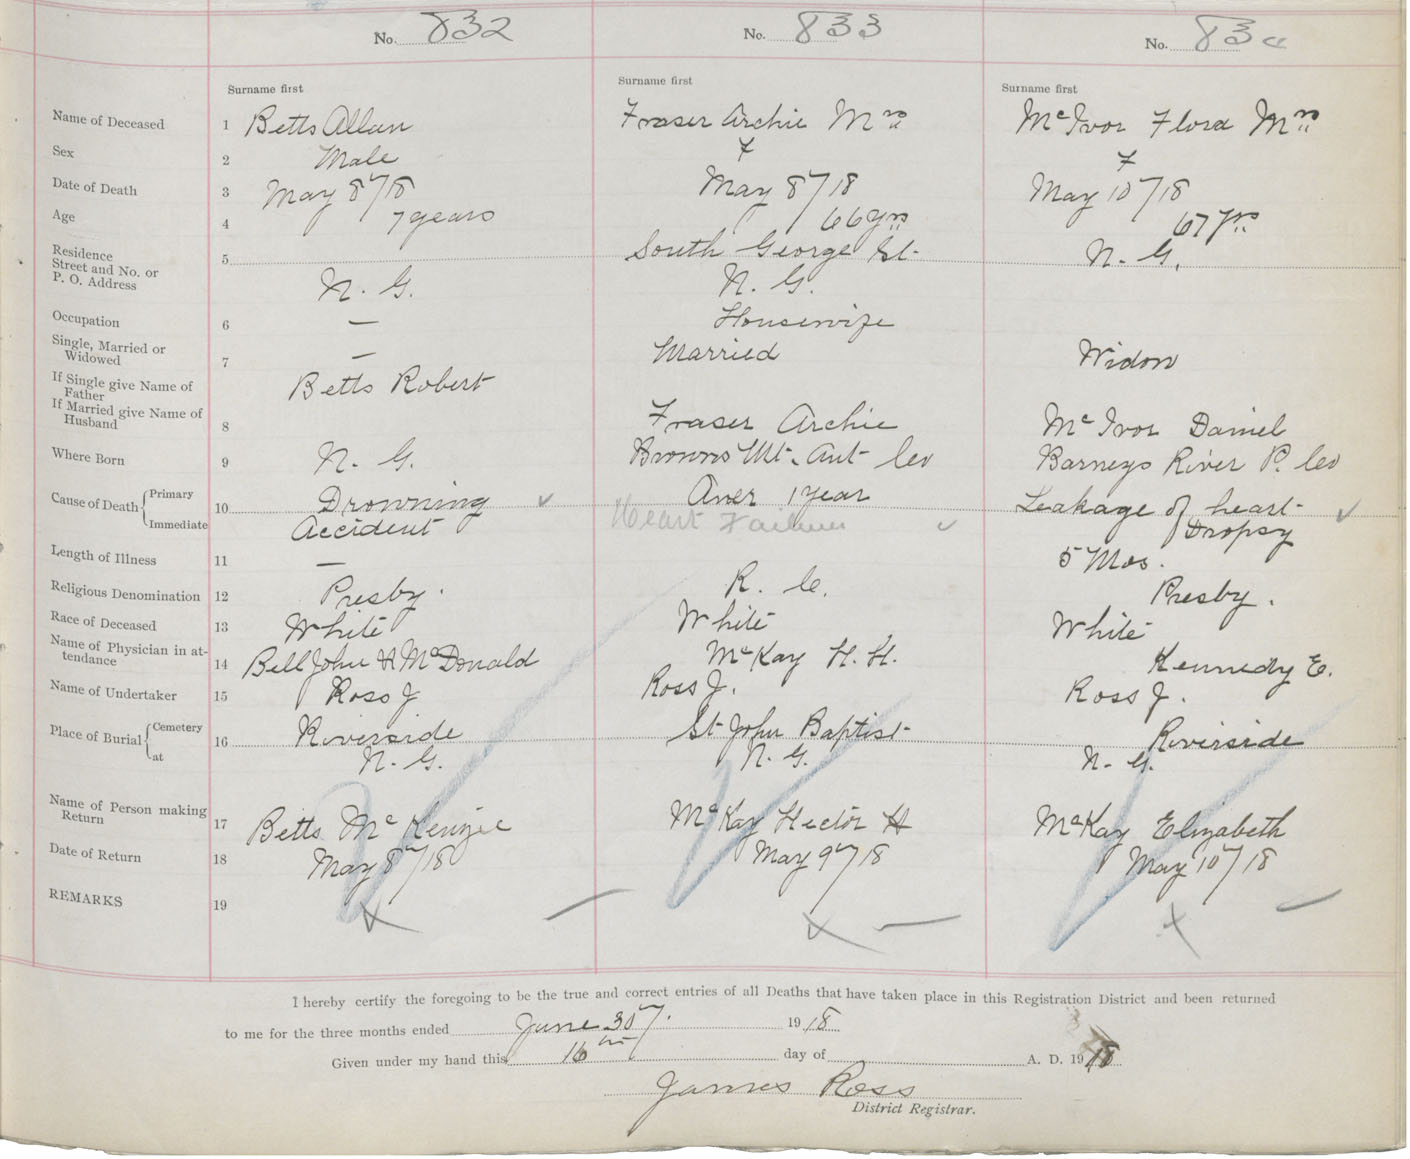 No. 832
No. 833
No. 834
Surname first
Surname first
Surname first
Name of Deceased 1 Betts Allan
Fraser Archie Mrs
McIvor Flora Mrs
Sex 2 Male
F
F
Date of Death 3 May 8"/18
May 8"/18
May 10"/18
Age 4 7 years
66 yrs
67 yrs
Residence
Street and No. or
P. O. Address
5
N. G.
South George St.
N. G.
N. G.
Occupation 6 —
Housewife
Single, Married or
Widowed
7 —
Married
Widow
If Single give Name of
Father
If Married give Name of
Husband
8
Betts Robert
Fraser Archie
McIvor Daniel
Where Born 9 N. G.
Browns Mt. Ant Co
Barneys River P. Co
Cause of Death { Primary
Immediate
10 Drowning
Accident
Over 1 year
Heart Failure
Leakage of heart
Dropsy
Length of Illness 11 —
5 Mos.
Religious Denomination 12 Presby.
R. C.
Presby.
Race of Deceased 13 White
White
White
Name of Physician in at-
tendance
14 Bell John & McDonald
McKay H. H.
Kennedy E.
Name of Undertaker 15 Ross J
Ross J.
Ross J.
Place of Burial { Cemetery
at
16 Riverside
N. G.
St John Baptist
N. G.
Riverside
N. G.
Name of Person making
Return
17 Betts McKenzie
McKay Hector H
McKay Elizabeth
Date of Return 18 May 8"/18
May 9"/18
May 10"/18
REMARKS 19
I hereby certify the foregoing to be the true and correct entries of all Deaths that have taken place in this Registration District and been returned
to me for the three months ended June 30". 1918
Given under my hand this 16th day of A. D. 1918
James Ross
District Registrar.